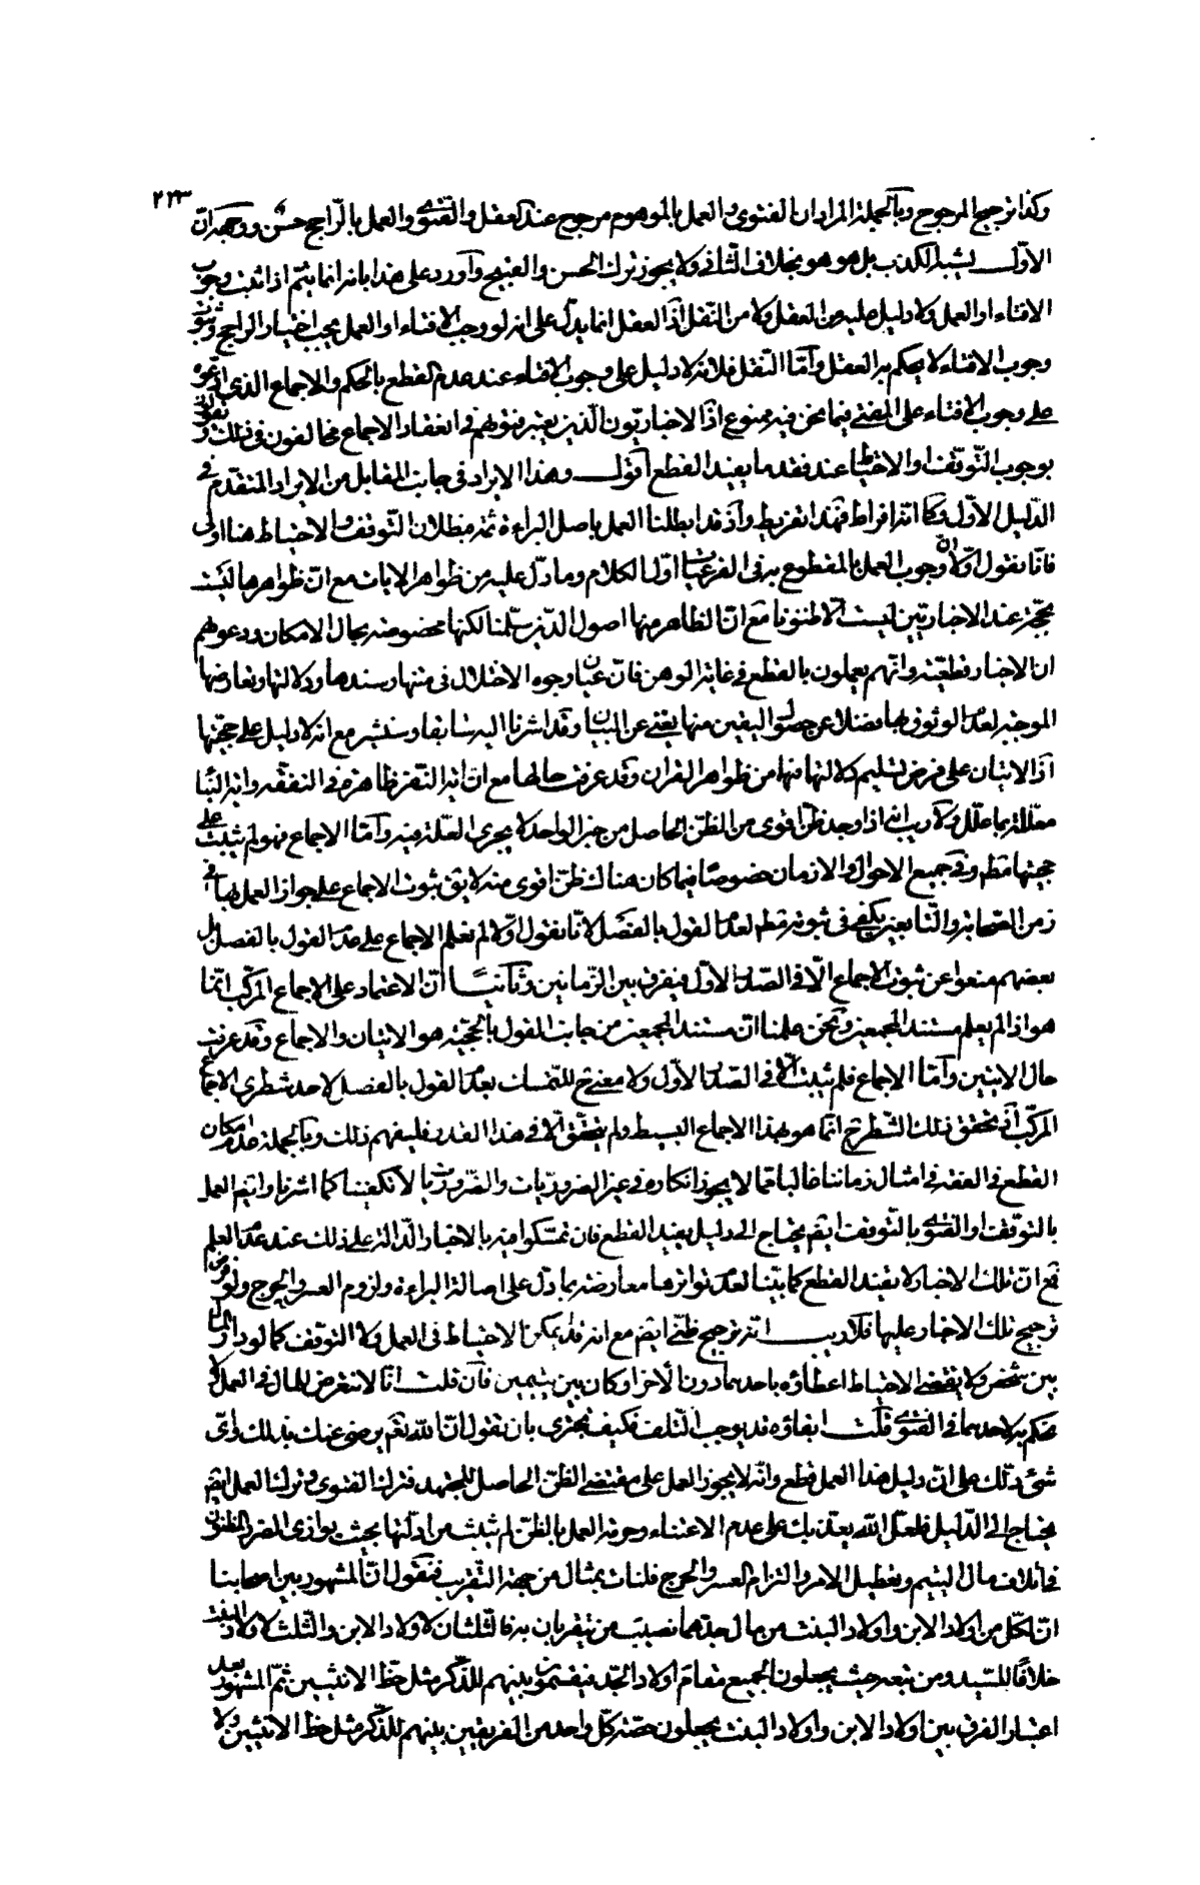 ٢٢٣
وكذا ترجيح المرجوح وبالجملة المراد ان الفتوى والعمل بالموهوم مرجوح عند العقل والفتوى والعمل بالراجح حسن ووجهه ان
الاول يشبه الكذب بل هو هو بخلاف الثاني ولا يجوز ترك الحسن والقبيح واورد على هذا بانه انما يتم اذا ثبت وجوب
الافتاء او العمل ولا دليل عليه من العقل ولا من النقل اذ العقل انما يدل على انه لو وجب الافتاء او العمل يجب اختيار الراجح وثبوت
وجوب الافتاء لا يحكم به العقل واما النقل فلانه لا دليل على وجوب الافتاء عند عدم القطع بالحكم والاجماع الذي ادعوه
على وجوب الافتاء على المفتي فيما نحن فيه ممنوع اذ الاخباريون الذين يعتبر فتوهم في انعقاد الاجماع مخالفون في ذلك ويقولون
بوجوب التوقف او الاحتياط عند فقد ما يفيد القطع اقول وهذا الايراد في جانب المقابل من الايراد المتقدم في
الدليل الاول وكما انه افراط فهذا تفريط واذ قد ابطلنا العمل باصل البراءة ثمه فبطلان التوقف والاحتياط هنا اولى
فانا نقول اولا ان وجوب العمل بالمقطوع به في الفرعيات اول الكلام وما دل عليه من ظواهر الايات مع ان ظواهرها ليست
بحجة عند الاخباريين ليست الا ظنونا مع ان الظاهر منها اصول الدين سلمنا لكنها مخصوصة بحال الامكان ودعوهم
ان الاخبار قطعية وانهم يعملون بالقطع في غاية الوهن فان عيان وجوه الاختلال في متنها وسندها ودلالتها وتعارضها
الموجبة لعدم الوثوق بها فضلا عن حصول اليقين منها يغني عن البيان وقد اشرنا اليه سابقا وسنشير مع انه لا دليل على حجيتها
اذ الايتان على فرض تسليم دلالتها فهما من ظواهر القران وقد عرفت حالها مع ان اية النفر ظاهرة في التفقه واية النبا
معللة بما علل ولا ريب انه اذا وجد ظن اقوى من الظن الحاصل من خبر الواحد لا يجري العلة فيه واما الاجماع فهو لم يثبت على
حجيتها مطم وفي جميع الاحوال والازمان خصوصا فيما كان هناك ظن اقوى منه لا يق ثبوت الاجماع على جواز العمل بها في
زمن الصحابة والتابعين يكفي في ثبوته مطم لعدم القول بالفصل لانا نقول اولا لم نعلم الاجماع على عدم القول بالفصل بل
بعضهم منعوا عن ثبوت الاجماع الا في الصدر الاول فيفرق بين الزمانين وثانيا ان الاعتماد على الاجماع المركب انما
هو اذا لم يعلم مستند المجمعين ونحن علمنا ان مستند المجمعين من جانب القول بالحجية هو الايتان والاجماع وقد عرفت
حال الايتين واما الاجماع فلم يثبت الا في الصدر الاول ولا معنى ح للتمسك بعدم القول بالفصل لاحد شطري الاجماع
المركب اذ تحقق ذلك الشطر ح انما هو بهذا الاجماع البسيط ولم يتحقق الا في هذا القدر فليفهم ذلك وبالجملة عدم امكان
القطع في الفقه في امثال زماننا غالبا مما لا يجوز انكاره في غير الضروريات والضروريات لا تكفينا كما اشرنا وايضا العمل
بالتوقف او الفتوى بالتوقف ايضم يحتاج الى دليل يفيد القطع فان تمسكوا فيه بالاخبار الدالة على ذلك عند عدم العلم
فمع ان تلك الاخبار لا يفيد القطع كما بينا لعدم تواترها معارضة بما دل على اصالة البراءة ولزوم العسر والحرج ولو فرض
ترجيح تلك الاخبار عليها فلا ريب انه ترجيح ظني ايضم مع انه قد لا يمكن الاحتياط في العمل ولا التوقف كما لو دار المال
بين شخصين ولا يقتضي الاحتياط اعطاؤه باحدهما دون الاخر او كان بين يتيمين فان قلت انا لا نتعرض للمال في العمل ولا
نحكم به لاحدهما في الفتوى قلت ابقاؤه قد يوجب التلف فكيف تجتري بان تقول ان الله تعم يرضى عنك بذلك واى
شيء دلك على ان دليل هذا العمل قطع وانه لا يجوز العمل على مقتضى الظن الحاصل للمجتهد فترك الفتوى وترك العمل ايضم
يحتاج الى الدليل فلعل الله يعذبك على عدم الاعتناء وحرمة العمل بالظن لم يثبت من ادلتها بحيث يوازي الضرر المظنون
في اتلاف مال اليتيم وتعطيل الامر والتزام العسر والحرج فلنات بمثال من جهة التقريب فنقول ان المشهور بين اصحابنا
ان لكل من اولاد الابن واولاد البنت من مال جدهما نصيب من يتقربان به فالثلثان لاولاد الابن والثلث لاولاد البنت
خلافا للسيد ومن تبعه حيث يجعلون الجميع مقام اولاد الجد فيقسمون بينهم للذكر مثل حظ الانثيين ثم المشهور بعد
اعتبار الفرق بين اولاد الابن واولاد البنت يجعلون حصة كل واحد من الفريقين بينهم للذكر مثل حظ الانثيين ولا